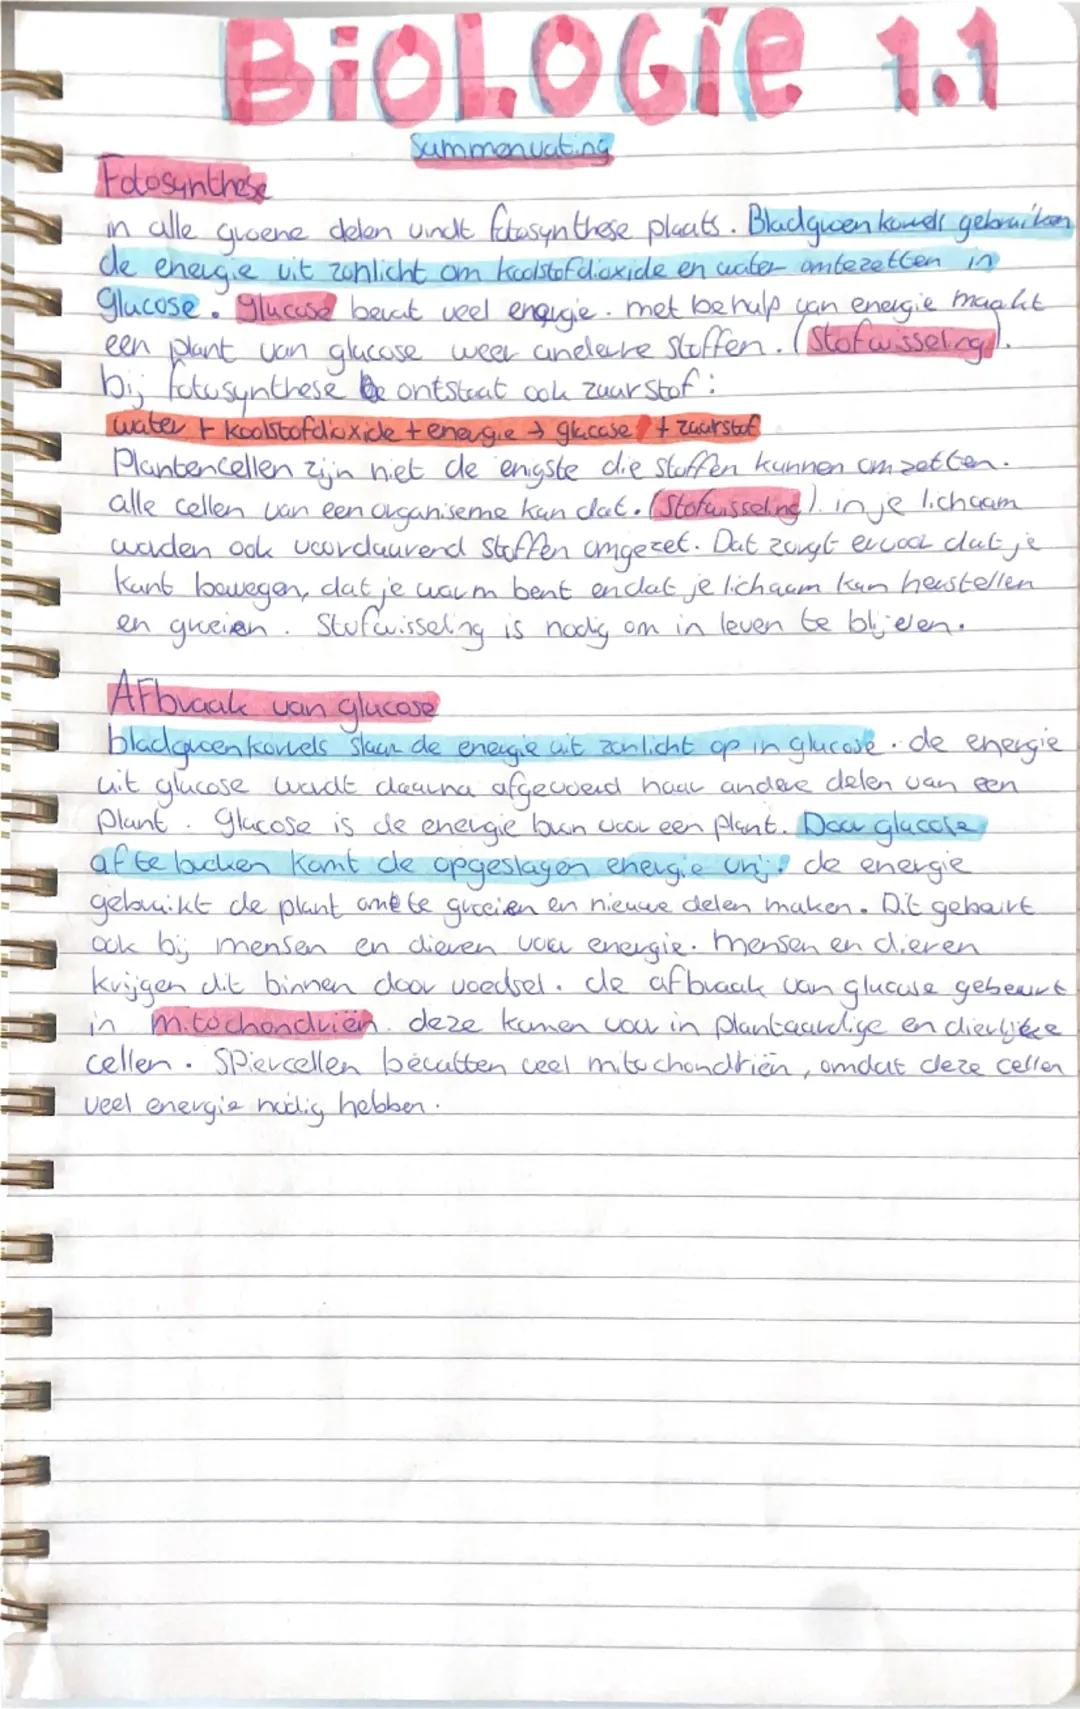 BiOLOGIE 1.1
Summenvating
Fotosynthese
in alle groene delen vindt fotosynthese plaats. Bladgroenkorrels gebruiken
de energie uit zonlicht om koolstofdioxide en water omtezetten in
glucose. Glucose bevat veel energie. met behulp van energie maakt
een plant van glucose weer andere stoffen. (Stofwisseling).
bij fotosynthese ontstaat ook zuurstof:
water + koolstofdioxide + energie → glucose + zuurstof
Plantencellen zijn niet de enigste die stoffen kunnen omzetten.
alle cellen van een organisme kan dat. (Stofwisseling). in je lichaam
worden ook voordaurend stoffen omgezet. Dat zorgt ervoor dat je
kunt bewegen, dat je warm bent en dat je lichaam kan herstellen
en groeien. Stofwisseling is nodig om in leven te blijven.
AFbraak van glucose
bladgroenkorrels slaan de energie uit zonlicht op in glucose. de energie
uit glucose wordt daarna afgevoerd naar andere delen van een
plant. Glucose is de energie bron voor een plant. Door glucose
af te breken komt de opgeslagen energie vrij. de energie
gebruikt de plant om te groeien en nieuwe delen maken. Dit gebeurt
ook bij mensen en dieren voor energie. Mensen en dieren
krijgen dit binnen door voedsel. de afbraak van glucose gebeurt
in mitochondriën. deze komen voor in plantaardige en dierlijke
cellen. Spiercellen bevatten veel mitochondriën, omdat deze cellen
veel energie nodig hebben.